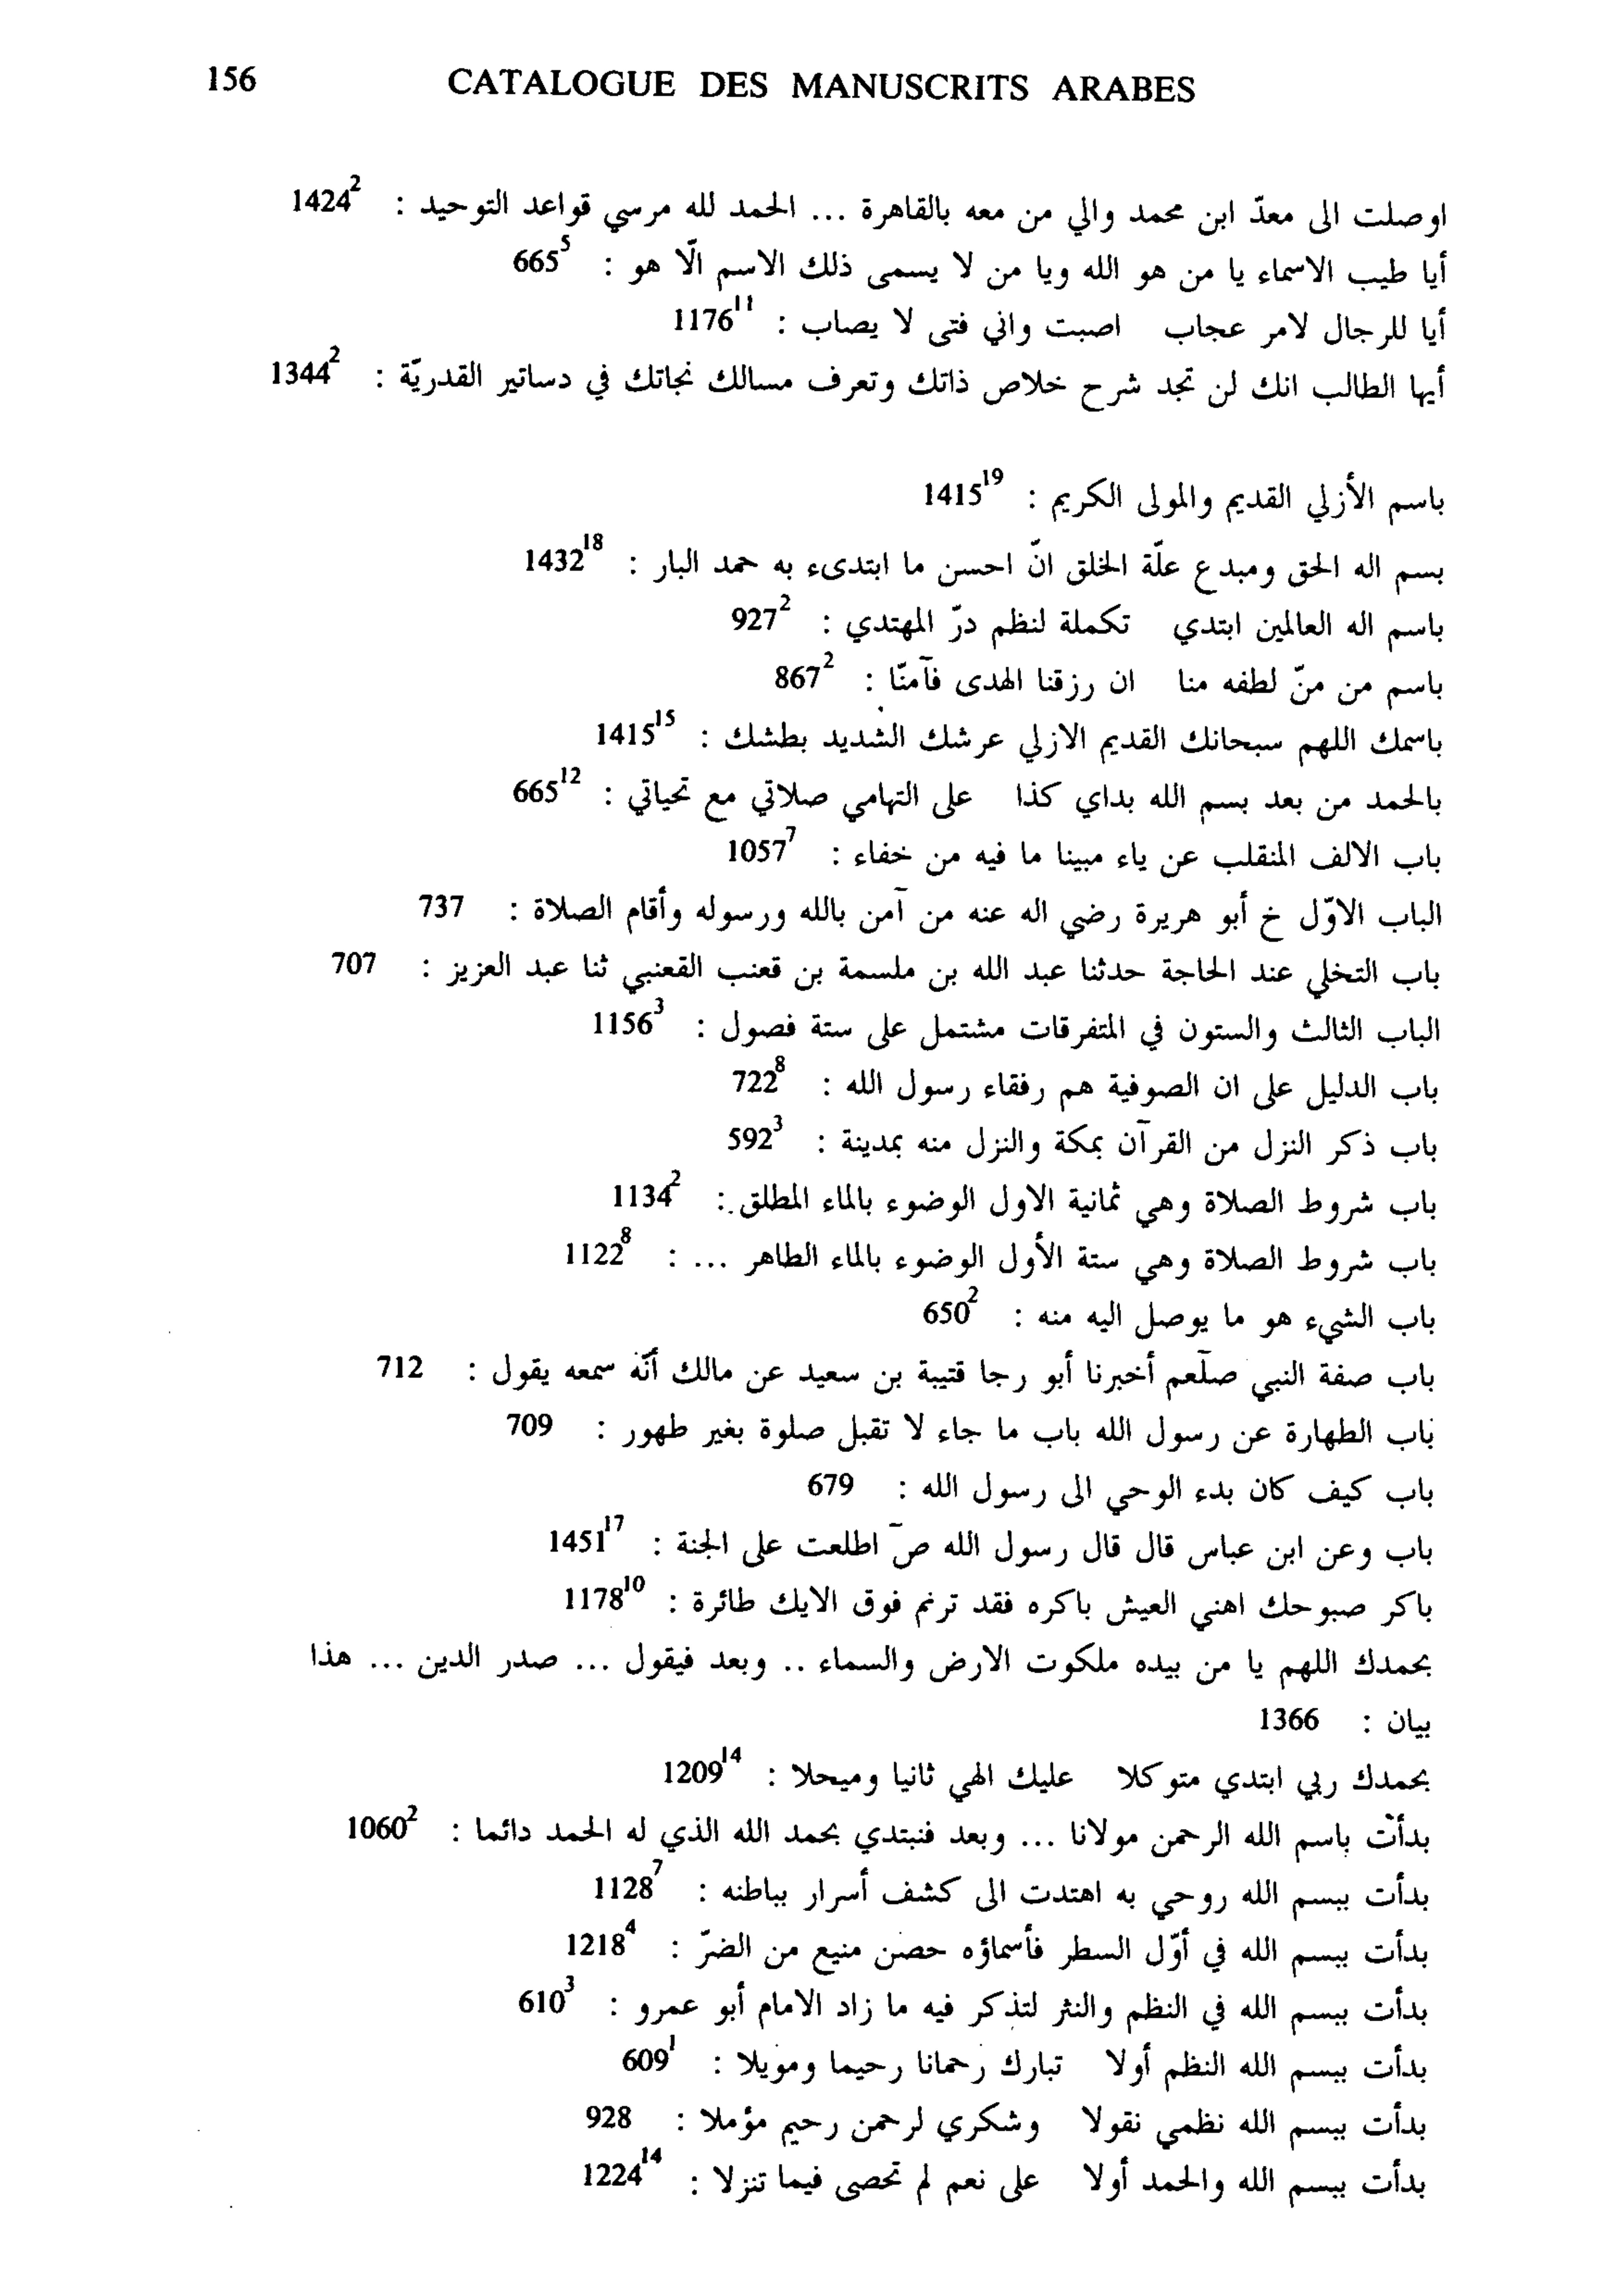 156 CATALOGUE DES MANUSCRITS ARABES
اوصلت الى معدّ ابن محمد والي من معه بالقاهرة ... الحمد لله مرسي قواعد التوحيد : 1424²
أيا طيب الاسماء يا من هو الله ويا من لا يسمى ذلك الاسم الّا هو : 665⁵
أيا للرجال لامر عجاب اصبت واني فتى لا يصاب : 1176¹¹
أيها الطالب انك لن تجد شرح خلاص ذاتك وتعرف مسالك نجاتك في دساتير القدريّة : 1344²
باسم الأزلي القديم والمولى الكريم : 1415¹⁹
بسم اله الحق ومبدع علّة الخلق انّ احسن ما ابتدىء به حمد البار : 1432¹⁸
باسم اله العالمين ابتدي تكملة لنظم درّ المهتدي : 927²
باسم من منّ لطفه منا ان رزقنا الهدى فآمنّا : 867²
باسمك اللهم سبحانك القديم الازلي عرشك الشديد بطشك : 1415¹⁵
بالحمد من بعد بسم الله بداي كذا على التهامي صلاتي مع تحياتي : 665¹²
باب الالف المنقلب عن ياء مبينا ما فيه من خفاء : 1057⁷
الباب الاوّل خ أبو هريرة رضي اله عنه من آمن بالله ورسوله وأقام الصلاة : 737
باب التخلي عند الحاجة حدثنا عبد الله بن ملسمة بن قعنب القعنبي ثنا عبد العزيز : 707
الباب الثالث والستون في المتفرقات مشتمل على ستة فصول : 1156³
باب الدليل على ان الصوفية هم رفقاء رسول الله : 722⁸
باب ذكر النزل من القرآن بمكة والنزل منه بمدينة : 592³
باب شروط الصلاة وهي ثمانية الاول الوضوء بالماء المطلق : 1134²
باب شروط الصلاة وهي ستة الأول الوضوء بالماء الطاهر ... : 1122⁸
باب الشيء هو ما يوصل اليه منه : 650²
باب صفة النبي صلّعم أخبرنا أبو رجا قتيبة بن سعيد عن مالك أنّه سمعه يقول : 712
باب الطهارة عن رسول الله باب ما جاء لا تقبل صلوة بغير طهور : 709
باب كيف كان بدء الوحي الى رسول الله : 679
باب وعن ابن عباس قال قال رسول الله صٓ اطلعت على الجنة : 1451¹⁷
باكر صبوحك اهني العيش باكره فقد ترنم فوق الايك طائرة : 1178¹⁰
بحمدك اللهم يا من بيده ملكوت الارض والسماء .. وبعد فيقول ... صدر الدين ... هذا
بيان : 1366
بحمدك ربي ابتدي متوكلا عليك الهي ثانيا وميحلا : 1209¹⁴
بدأت باسم الله الرحمن مولانا ... وبعد فنبتدي بحمد الله الذي له الحمد دائما : 1060²
بدأت ببسم الله روحي به اهتدت الى كشف أسرار بباطنه : 1128⁷
بدأت ببسم الله في أوّل السطر فأسماؤه حصن منيع من الضرّ : 1218⁴
بدأت ببسم الله في النظم والنثر لتذكر فيه ما زاد الامام أبو عمرو : 610³
بدأت ببسم الله النظم أولا تبارك رحمانا رحيما ومويلا : 609¹
بدأت ببسم الله نظمي نقولا وشكري لرحمن رحيم مؤملا : 928
بدأت ببسم الله والحمد أولا على نعم لم تحصى فيما تنزلا : 1224¹⁴